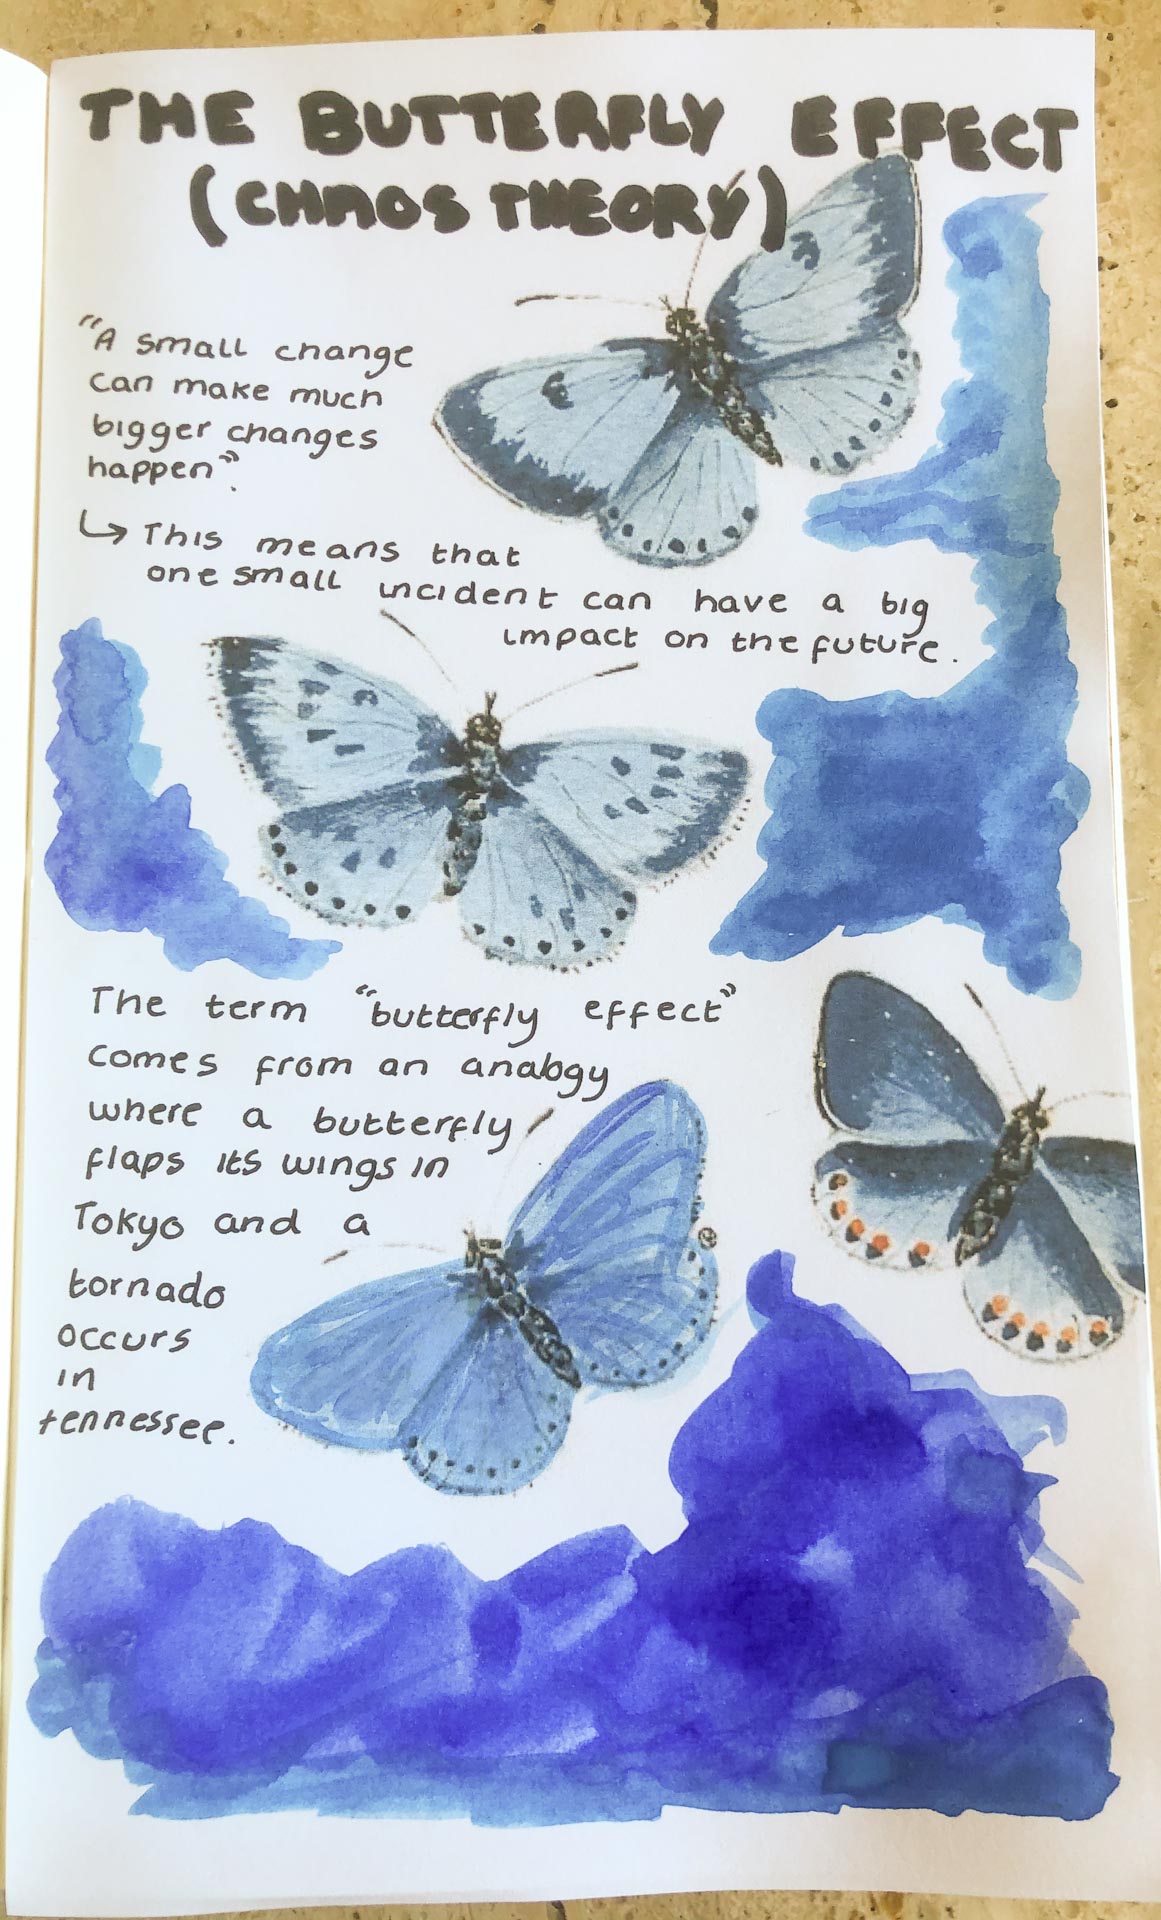 THE BUTTERFLY EFFECT
(CHAOS THEORY)
"A small change
can make much
bigger changes
happen".
↳ This means that
one small incident can have a big
impact on the future.
The term "butterfly effect"
comes from an analogy
where a butterfly
flaps its wings in
Tokyo and a
tornado
occurs
in
tennessee.